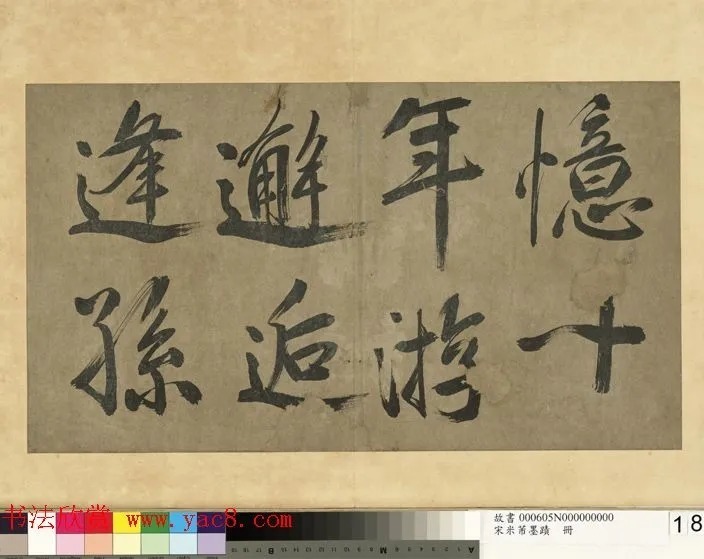 憶十
年游
邂逅
逢孫
书法欣赏 www.yac8.com
故書 000605N000000000
宋米芾墨蹟 冊
18